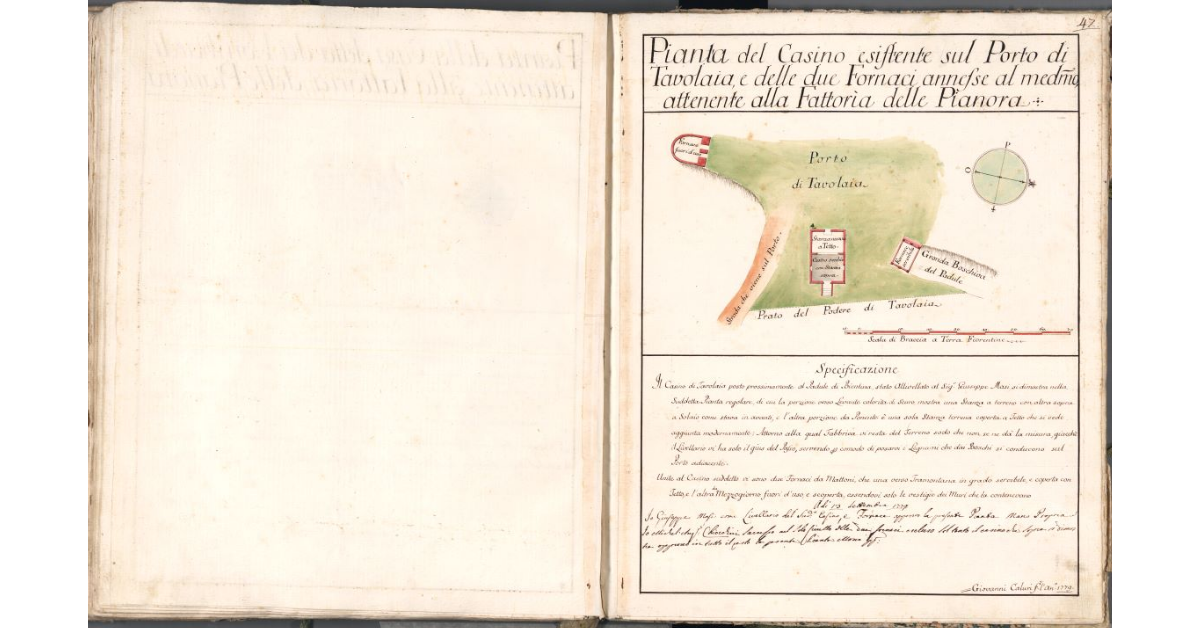 47
Pianta del Casino esistente sul Porto di
Tavolaia, e delle due Fornaci annesse al medmo,
attenente alla Fattoria delle Pianora
Fornace
fuori d'uso
Porto
di Tavolaia
P
O
Stanzone
a Tetto
Casino
con Stanza
Fornace
servibile
Gronda Boschiva
del Padule
Strada che viene sul Porto
Prato del Podere di Tavolaia
Scala di Braccia a Terra Fiorentine
Specificazione
Il Casino di Tavolaia posto prossimamente al Padule di Bientina, stato Allivellato al Sig. Giuseppe Masi, si dimostra nella
Suddetta Pianta regolare, di cui la porzione verso Levante colorita di Scuro mostra una Stanza a terreno con altra sopra
a Solaio come stava in avanti, e l'altra porzione da Ponente è una sola Stanza terrena coperta a Tetto che si vede
aggiunta modernamente; Attorno alla qual Fabbrica vi resta del Terreno sodo che non se ne dà la misura, giacchè
il Livellario vi ha solo il gius del Passo, servendo comodo di posarvi i Legnami che dai Boschi si conducono sul
Porto adiacente.
Unito al Casino suddetto vi sono due Fornaci da Mattoni, che una verso Tramontana in grado servibile, e coperta con
Tetto, e l'altra Mezzogiorno fuori d'uso, e scoperta, essendovi solo le vestigie dei Muri che la contenevano
Adi 13 Settembre 1779
Io Giuseppe Masi come Livellario del Sud. Casino, e Fornace approvo la presente Pianta Mano Propria
Giovanni Caluri f. An. 1779